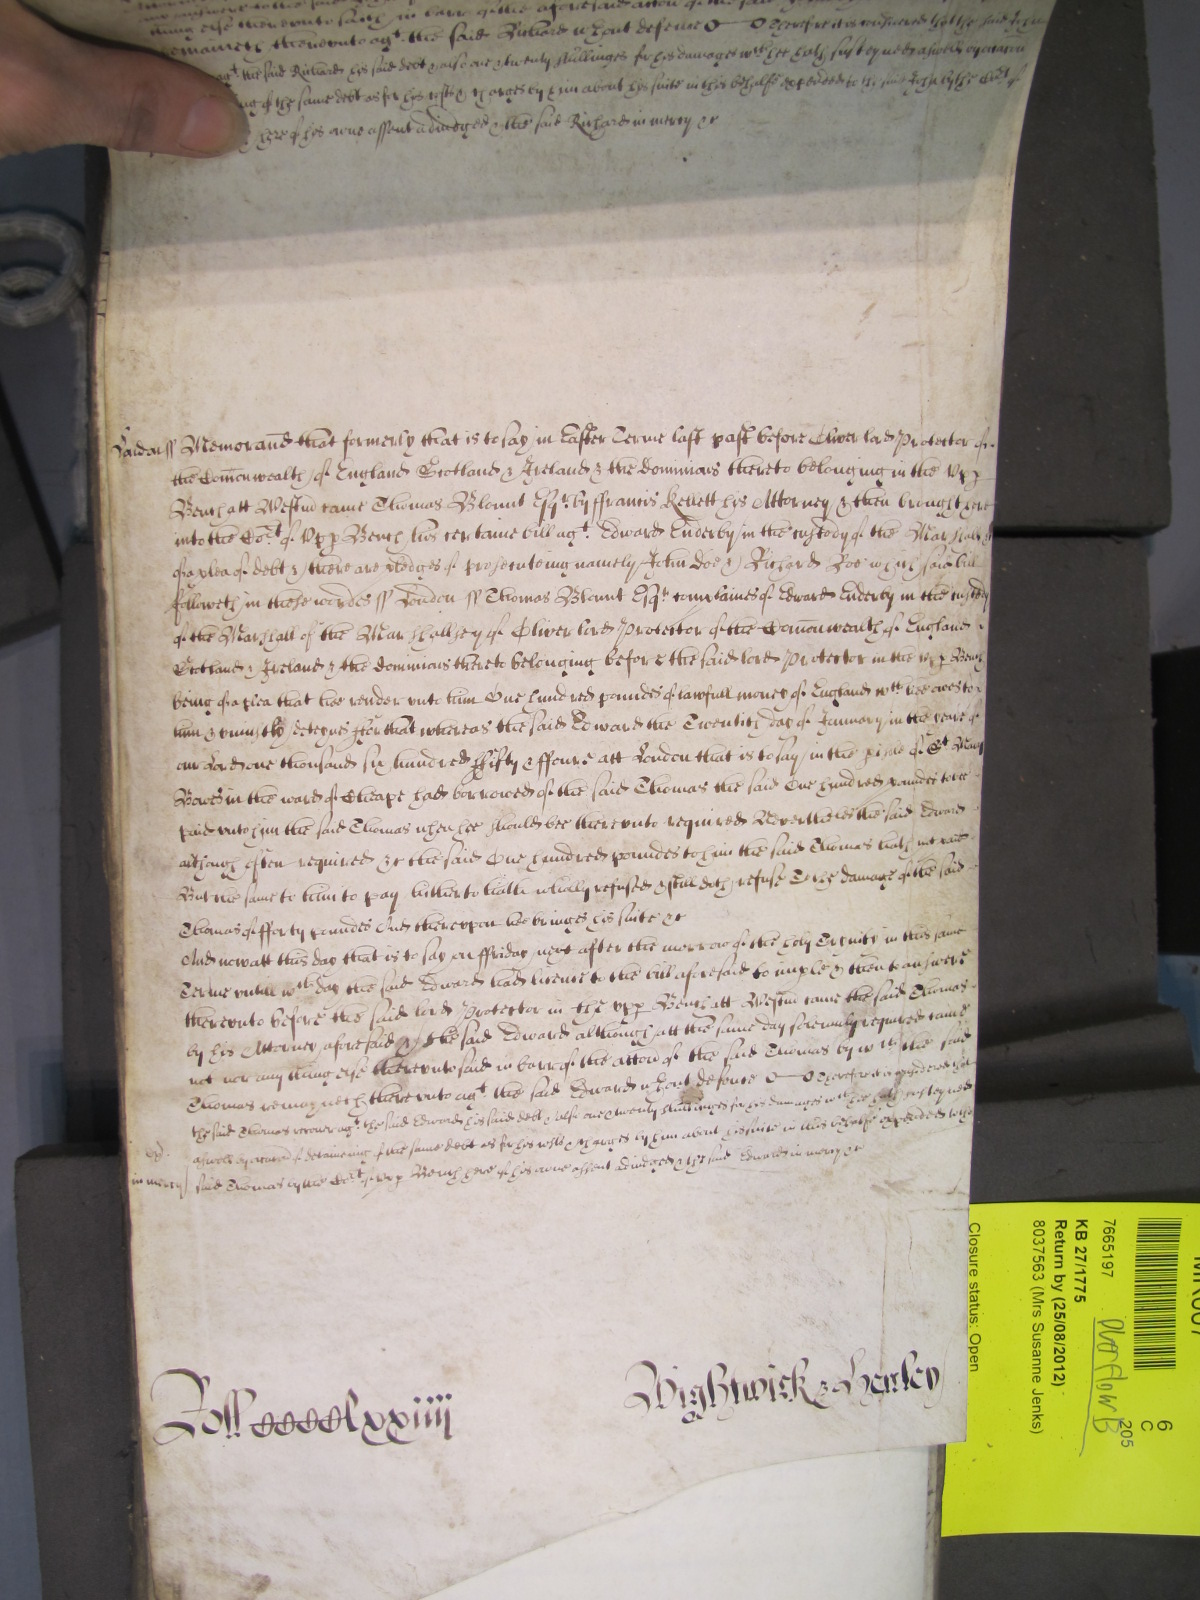 thing else thereunto saith in barr of the aforesaid accon of the said
remaineth thereunto agt. the said Richard wthout defence Therefore it is considered that the said John
agt. the said Richard his said debt & also one & twenty shillinges for his damages wch hee hath susteyned aswell by occasion
of the same debt as for his costs & charges by him about his suite in this behalfe expended to the said John by the Cort of
here of his owne assent adiudged & the said Richard in mercy &c
London ss Memorand that formerly that is to say in Easter Terme last past before Oliver lord Protector of
the Comonwealth of England Scotland & Ireland & the dominions thereto belonging in the Upp
Bench att Westm came Thomas Blount Esqr. by ffrancis Kellett his Attorney & then brought here
into the Cort. of Upp Bench his certaine bill agt. Edward Enderby in the custody of the Marshall
of a plea of debt & there are pledges of prosecuteing namely John Doe & Richard Roe which said bill
followeth in these wordes ss London ss Thomas Blount Esqr. complaines of Edward Enderby in the custody
of the Marshall of the Marshallsey of Oliver lord Protector of the Comonwealth of England
Scotland & Ireland & the dominions thereto belonging before the said lord Protector in the upp Bench
being of a plea that hee render unto him One hundred poundes of lawfull money of England wch hee owes to
him & uniustly deteynes ffor that whereas the said Edward the Twentith day of January in the yeare of
our Lord one thousand six hundred ffifty & ffoure att London that is to say in the pish of St. Mary
Bowe in the ward of Cheape had borrowed of the said Thomas the said One hundred poundes to be
paid unto him the said Thomas when hee should bee thereunto required Neverthelesse the said Edward
although often required &c the said One hundred poundes to him the said Thomas hath not paid
But the same to him to pay hitherto hath wholly refused & still doth refuse To the damage of the said
Thomas of fforty poundes And thereupon hee bringes his suite &c
And now att this day that is to say on ffriday next after the morrow of the holy Trynity in this same
Terme untill wch day the said Edward had licence to the bill aforesaid to imple & then to answere
thereunto before the said lord Protector in the upp Bench att Westm came the said Thomas
by his Attorney aforesaid & the said Edward although att the same day solemnly required came
not nor any thing else thereunto said in barr of the accon of the said Thomas by wch the said
Thomas remayneth thereunto agt. the said Edward wthout defence Therefore it is considered that
the said Thomas recover agt. the said Edward his said debt & also one & twenty shillinges for his damages wch hee hath susteyned
aswell by occasion of deteineing of the same debt as for his costs & charges by him about his suite in this behalfe expended to the
in mercy said Thomas by the Cort. of upp Bench here of his owne assent adiudged & the said Edward in mercy &c
Roll CCCClxxiiij
Wightwick & Henley
7665197
KB 27/1775
Return by (25/08/2012)
8037563 (Mrs Susanne Jenks)
Closure status: Open
Overflow B
6
C
205